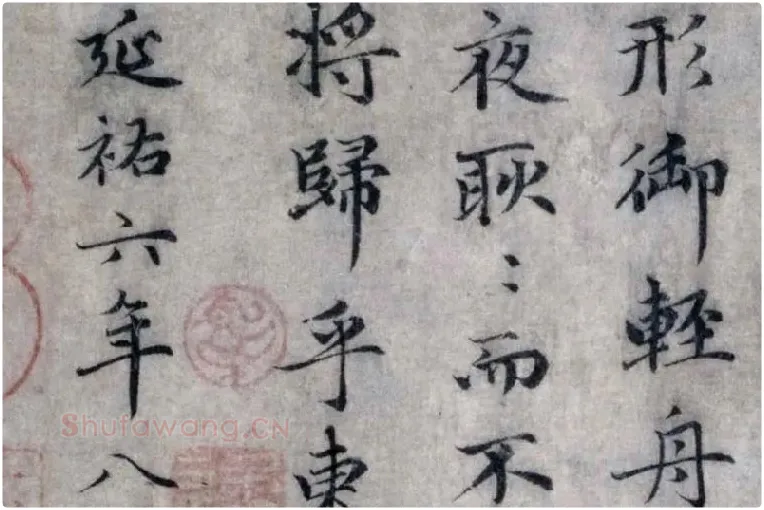 形御輕舟
夜耿〻而不
將歸乎東
延祐六年八
Shufawang.CN